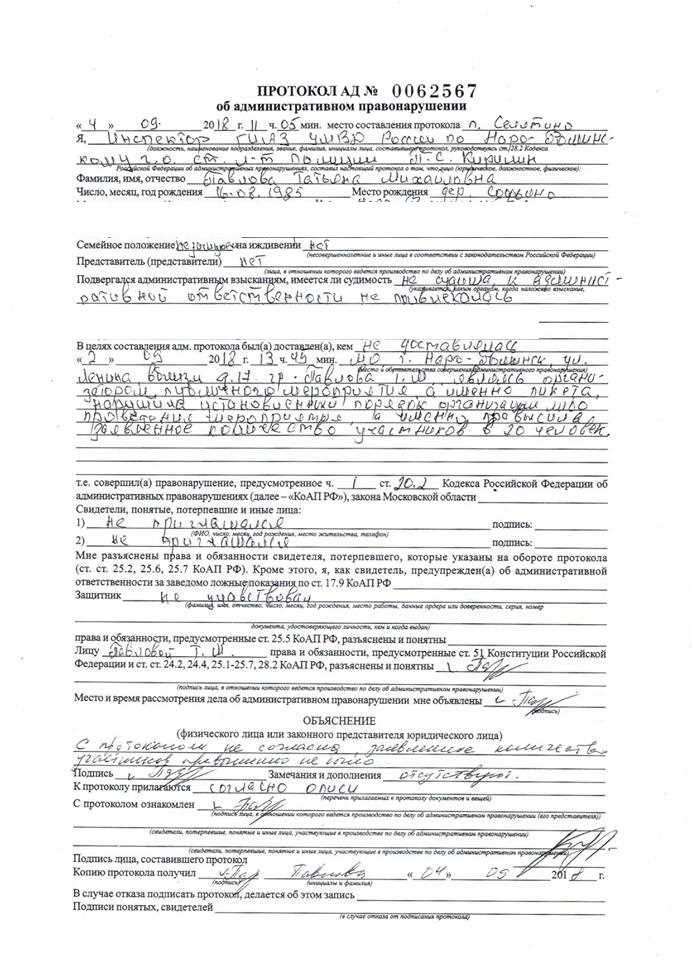 ПРОТОКОЛ АД № 0062567
об административном правонарушении
« 4 » 09 2018 г. 11 ч. 05 мин. место составления протокола п. Селятино
Я, Инспектор ГИАЗ УМВД России по Наро-Фоминс-
кому г.о. ст. л-т полиции Т.С. Кирилин
(должность, наименование подразделения, звание, фамилия, инициалы лица, составившего протокол, руководствуясь ст.28.2 Кодекса
Российской Федерации об административных правонарушениях, составил настоящий протокол о том, что лицо (юридическое, должностное, физическое):
Фамилия, имя, отчество Павлова Татьяна Михайловна
Число, месяц, год рождения 16.08.1985 Место рождения дер.
Семейное положение на иждивении нет
(несовершеннолетние и иные лица в соответствии с законодательством Российской Федерации)
Представитель (представители) нет
(лица, в отношении которого ведется производство по делу об административном правонарушении)
Подвергался административным взысканиям, имеется ли судимость не судима, к админист-
(указывается, каким органом, когда наложено взыскание,
ративной ответственности не привлекалась
В целях составления адм. протокола был(а) доставлен(а), кем не доставлялась
« 2 » 09 2018 г. 13 ч. 45 мин. МО г. Наро-Фоминск, ул.
(место и обстоятельства совершения административного правонарушения)
Ленина вблизи д.17 гр. Павлова Т.М., являясь органи-
затором публичного мероприятия а именно пикета,
нарушила установленный порядок организации либо
проведения мероприятия, а именно превысила
заявленное количество участников в 20 человек.
т.е. совершил(а) правонарушение, предусмотренное ч. 1 ст. 20.2 Кодекса Российской Федерации об
административных правонарушениях (далее – «КоАП РФ»), закона Московской области
Свидетели, понятые, потерпевшие и иные лица:
1) не приглашались подпись:
(ФИО, число, месяц, год рождения, место жительства, телефон)
2) не приглашались подпись:
Мне разъяснены права и обязанности свидетеля, потерпевшего, которые указаны на обороте протокола
(ст. ст. 25.2, 25.6, 25.7 КоАП РФ). Кроме этого, я, как свидетель, предупрежден(а) об административной
ответственности за заведомо ложные показания по ст. 17.9 КоАП РФ
Защитник не участвовал
(фамилия, имя, отчество, число, месяц, год рождения, место работы, данные ордера или доверенности, серия, номер
документа, удостоверяющего личность, кем и когда выдан)
права и обязанности, предусмотренные ст. 25.5 КоАП РФ, разъяснены и понятны
Лицу Павловой Т.М. права и обязанности, предусмотренные ст. 51 Конституции Российской
Федерации и ст. ст. 24.2, 24.4, 25.1-25.7, 28.2 КоАП РФ, разъяснены и понятны
(подпись лица, в отношении которого ведется производство по делу об административном правонарушении)
Место и время рассмотрения дела об административном правонарушении мне объявлены
(подпись)
ОБЪЯСНЕНИЕ
(физического лица или законного представителя юридического лица)
С протоколом не согласна, заявленное количество
участников превышено не было
Подпись Замечания и дополнения отсутствуют.
К протоколу прилагаются согласно описи
(перечень прилагаемых к протоколу документов и вещей)
С протоколом ознакомлен
(подпись лица, в отношении которого ведется производство по делу об административном правонарушении (его представителя))
(свидетели, потерпевшие, понятые и иные лица, участвующие в производстве по делу об административном правонарушении)
(свидетели, потерпевшие, понятые и иные лица, участвующие в производстве по делу об административном правонарушении)
Подпись лица, составившего протокол
Копию протокола получил Павлова « 04 » 09 2018 г.
(подпись) (инициалы и фамилия)
В случае отказа подписать протокол, делается об этом запись
Подписи понятых, свидетелей
(в случае отказа от подписания протокола)